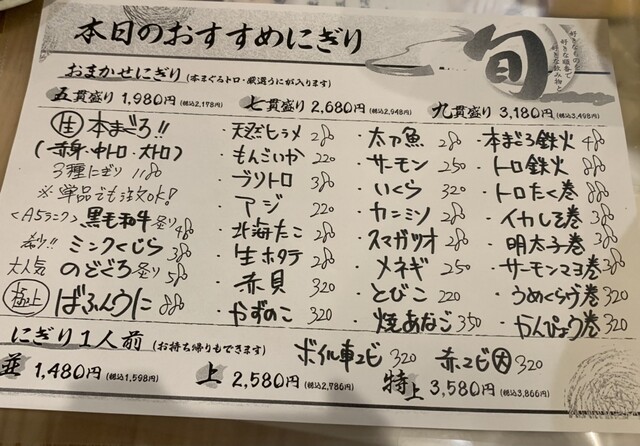 本日のおすすめにぎり
旬
好きなものを
好きな順番で
好きな飲み物と
おまかせにぎり(本まぐろトロ・厳選うにが入ります)
五貫盛り 1,980円(税込2,178円)
七貫盛り 2,680円(税込2,948円)
九貫盛り 3,180円(税込3,498円)
生 本まぐろ!!
(赤身・中トロ・大トロ)
3種にぎり 1180
※単品でも注文OK!
<A5ランク>黒毛和牛炙り 480
希少!! ミンクくじら 380
大人気 のどぐろ炙り 580
極上 ばふんうに 880
・天然ヒラメ 280
・もんごいか 220
・ブリトロ 380
・アジ 220
・北海たこ 280
・生ホタテ 280
・赤貝 320
・かずのこ 320
・太刀魚 280
・サーモン 250
・いくら 320
・カニミソ 280
・スマガツオ 280
・メネギ 250
・とびこ 220
・焼あなご 350
・本まぐろ鉄火 480
・トロ鉄火 880
・トロたく巻 880
・イカしそ巻 380
・明太子巻 380
・サーモンマヨ巻 380
・うめくらげ巻 320
・かんぴょう巻 320
ボイル車エビ 320
赤エビ大 320
にぎり1人前(お持ち帰りもできます)
並 1,480円(税込1,598円)
上 2,580円(税込2,786円)
特上 3,580円(税込3,866円)